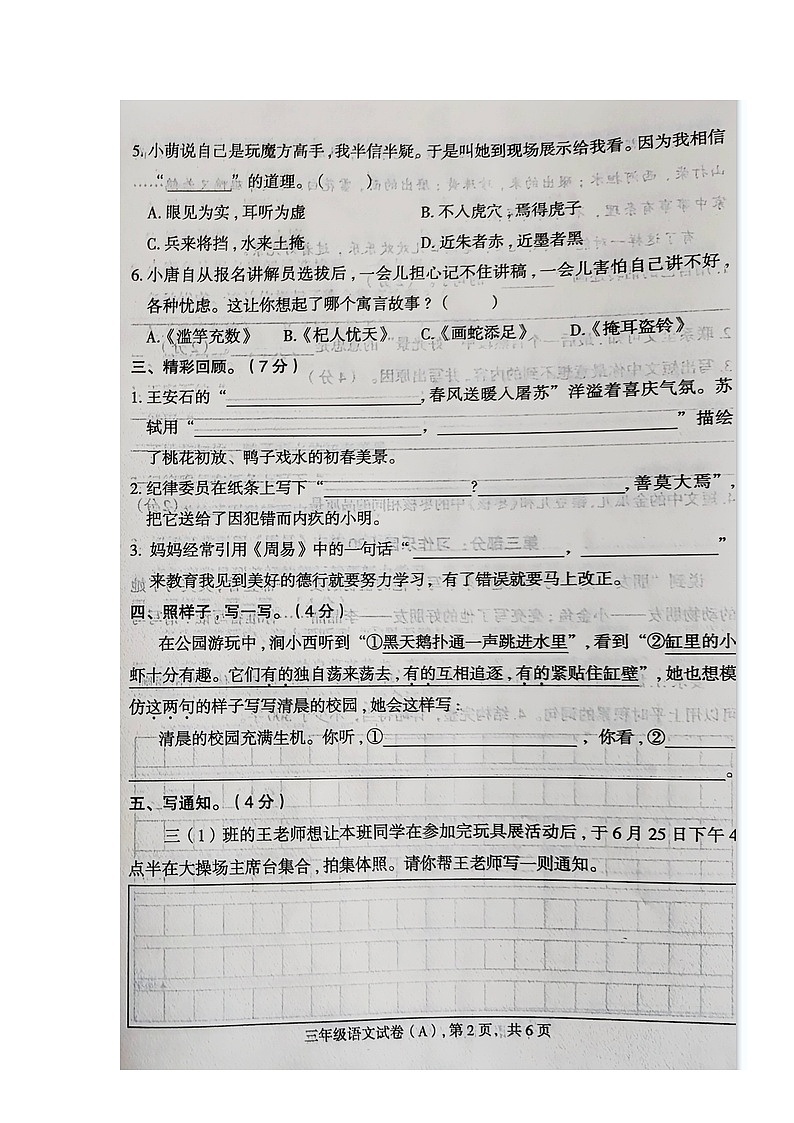 5. 小萌说自己是玩魔方高手,我半信半疑。于是叫她到现场展示给我看。因为我相信
“________”的道理。(    )
A. 眼见为实,耳听为虚    B. 不入虎穴,焉得虎子
C. 兵来将挡,水来土掩    D. 近朱者赤,近墨者黑
6. 小唐自从报名讲解员选拔后,一会儿担心记不住讲稿,一会儿害怕自己讲不好,
各种忧虑。这让你想起了哪个寓言故事?(    )
A.《滥竽充数》    B.《杞人忧天》    C.《画蛇添足》    D.《掩耳盗铃》
三、精彩回顾。(7分)
1. 王安石的“________________,春风送暖入屠苏”洋溢着喜庆气氛。苏
轼用“________________,________________”描绘
了桃花初放、鸭子戏水的初春美景。
2. 纪律委员在纸条上写下“____________?____________,善莫大焉”,
把它送给了因犯错而内疚的小明。
3. 妈妈经常引用《周易》中的一句话“____________,____________”
来教育我见到美好的德行就要努力学习,有了错误就要马上改正。
四、照样子,写一写。(4分)
在公园游玩中,涧小西听到“①黑天鹅扑通一声跳进水里”,看到“②缸里的小
虾十分有趣。它们有的独自荡来荡去,有的互相追逐,有的紧贴住缸壁”,她也想模
仿这两句的样子写写清晨的校园,她会这样写:
清晨的校园充满生机。你听,①________________,你看,②________
________________________________。
五、写通知。(4分)
三(1)班的王老师想让本班同学在参加完玩具展活动后,于6月25日下午4
点半在大操场主席台集合,拍集体照。请你帮王老师写一则通知。
三年级语文试卷(A),第2页,共6页